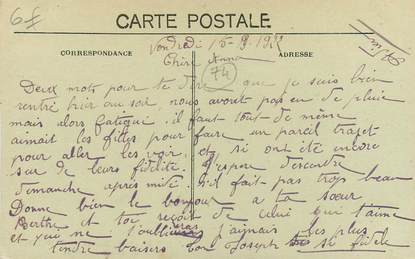 6f
CARTE POSTALE.
CORRESPONDANCE
ADRESSE
Vendredi 15-9-19
Chère Anna
74
Deux mots pour te dire que je suis bien
rentré hier au soir, nous avont pas eu de pluie
mais alors fatigué. il faut tout de même
aimait les filles pour faire un pareil trajet
pour aller les voir. et si ont été encore
sur de leurs fidélité. J'espère descendre
dimanche après midi s'il fait pas trop beau
Donne bien le bonjour a ta sœur
Berthe et toi reçoit de celui qui t'aime
et qui ne t'oubliera j'amais les plus
tendre baisers ton Joseph si fidèle